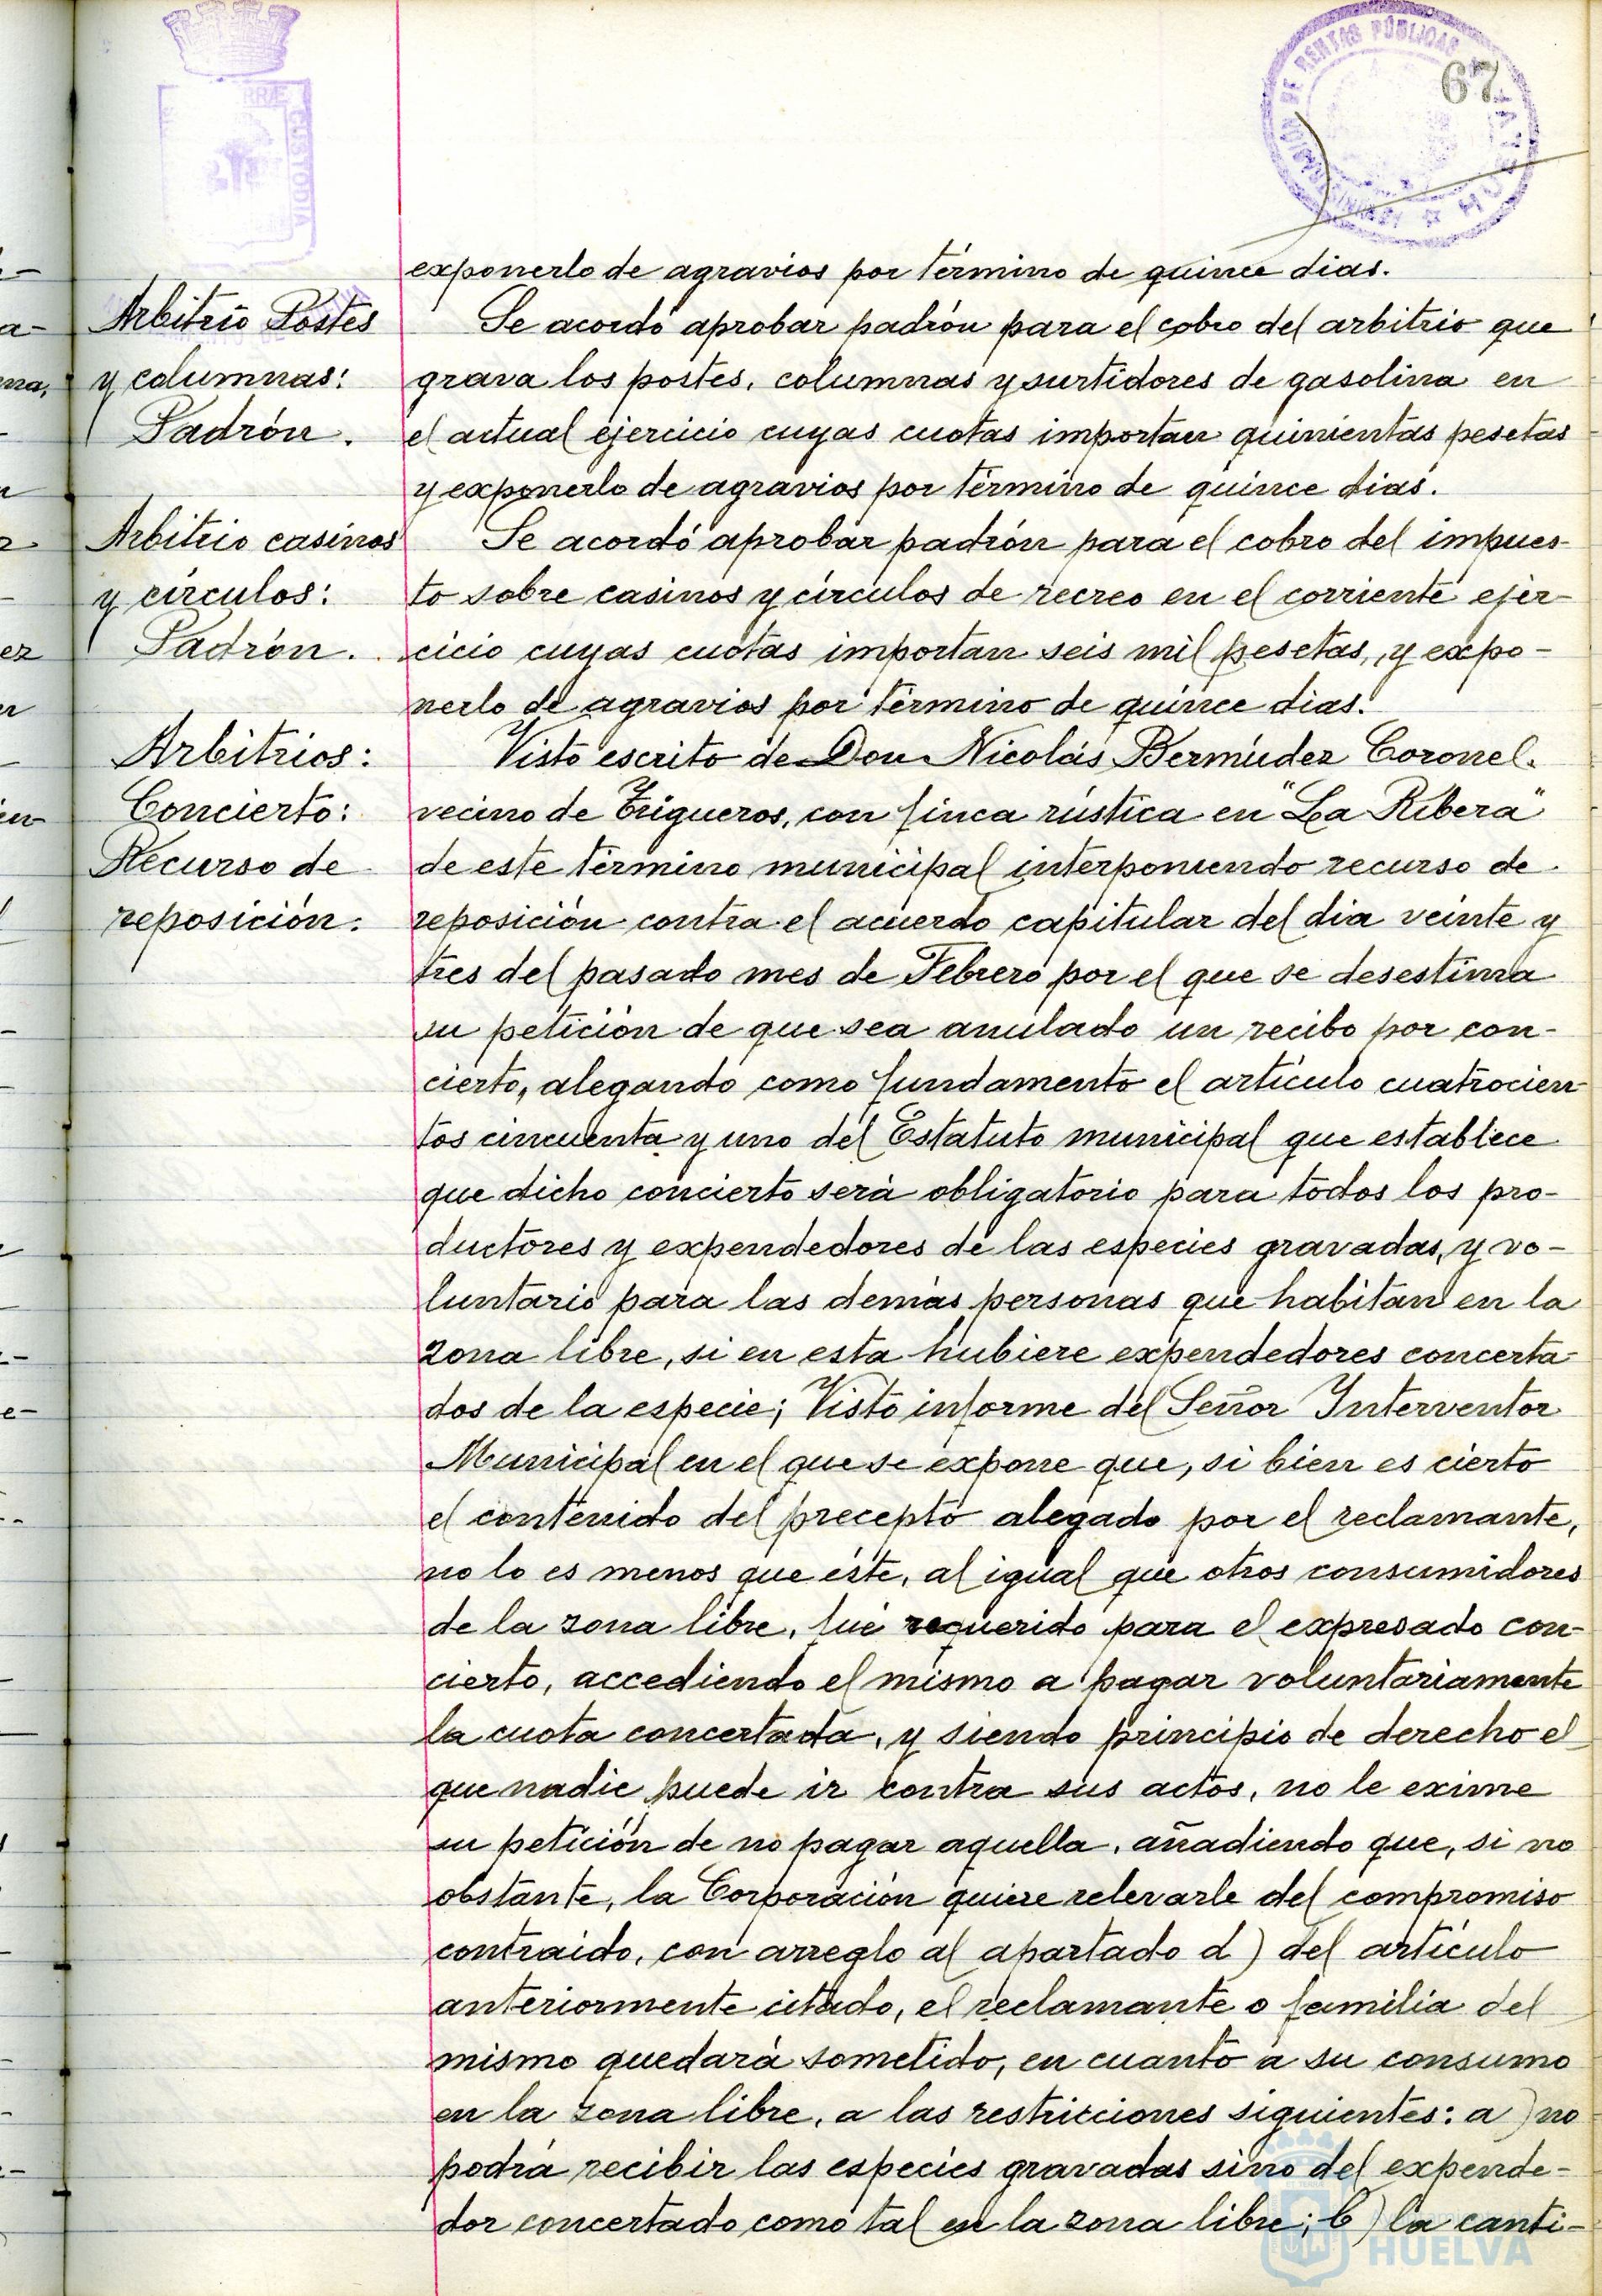 RRÆ
CUSTODIA
ADMINISTRACIÓN DE RENTAS PÚBLICAS
HUELVA
67
exponerlo de agravios por término de quince dias.
Arbitrio Postes
y columnas:
Padrón.
Se acordó aprobar padrón para el cobro del arbitrio que
grava los postes, columnas y surtidores de gasolina en
el actual ejercicio cuyas cuotas importan quinientas pesetas
y exponerlo de agravios por término de quince dias.
Arbitrio casinos
y círculos:
Padrón.
Se acordó aprobar padrón para el cobro del impues-
to sobre casinos y círculos de recreo en el corriente ejer-
cicio cuyas cuotas importan seis mil pesetas, y expo-
nerlo de agravios por término de quince dias.
Arbitrios:
Concierto:
Recurso de
reposición.
Visto escrito de Don Nicolás Bermúdez Coronel.
vecino de Trigueros, con finca rústica en "La Ribera"
de este término municipal interponiendo recurso de
reposición contra el acuerdo capitular del dia veinte y
tres del pasado mes de Febrero por el que se desestima
su petición de que sea anulado un recibo por con-
cierto, alegando como fundamento el artículo cuatrocien-
tos cincuenta y uno del Estatuto municipal que establece
que dicho concierto será obligatorio para todos los pro-
ductores y expendedores de las especies gravadas, y vo-
luntario para las demás personas que habitan en la
zona libre, si en esta hubiere expendedores concerta-
dos de la especie; Visto informe del Señor Interventor
Municipal en el que se expone que, si bien es cierto
el contenido del precepto alegado por el reclamante,
no lo es menos que éste, al igual que otros consumidores
de la zona libre, fué requerido para el expresado con-
cierto, accediendo el mismo a pagar voluntariamente
la cuota concertada, y siendo principio de derecho el
que nadie puede ir contra sus actos, no le exime
su petición de no pagar aquella, añadiendo que, si no
obstante, la Corporación quiere relevarle del compromiso
contraido, con arreglo al apartado d) del artículo
anteriormente citado, el reclamante o familia del
mismo quedará sometido, en cuanto a su consumo
en la zona libre, a las restricciones siguientes: a) no
podrá recibir las especies gravadas sino del expende-
dor concertado como tal en la zona libre; b) la canti-
HUELVA